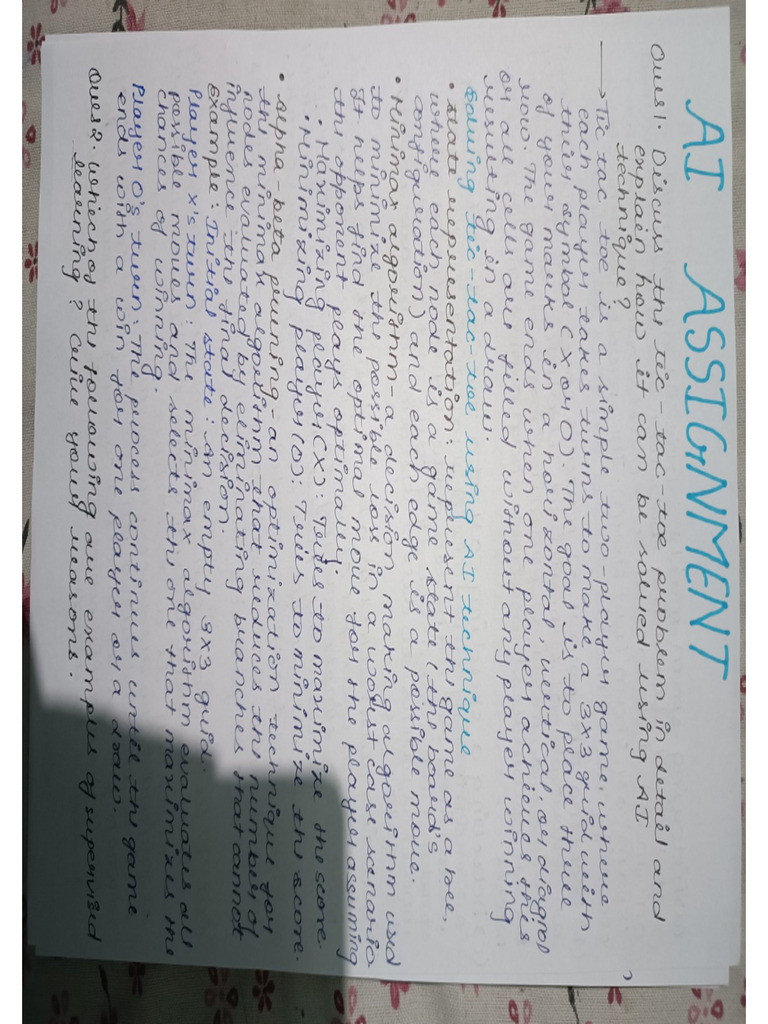 AI ASSIGNMENT
Ques1. Discuss the tic-tac-toe problem in detail and
explain how it can be solved using AI
technique?
→ Tic tac toe is a simple two-player game, where
each player takes turns to make a 3x3 grid with
their symbol (X or O). The goal is to place three
of your marks in a horizontal, vertical, or diagol
row. The game ends when one player achieves this
or all cells are filled without any player winning
resulting in a draw.
Solving tic-tac-toe using AI technique
• State representation: represent the game as a tree,
where each node is a game state (the board's
configuration) and each edge is a possible move.
• Minimax algorithm - a decision making algorithm used
to minimize the possible loss in a worst case scenario
It helps find the optimal move for the player assuming
the opponent plays optimally.
• Maximizing player (X): Tries to maximize the score.
• Minimizing player (O): Tries to minimize the score.
• Alpha-beta pruning - an optimization technique for
the minimax algorithm that reduces the number of
nodes evaluated by eliminating branches that cannot
influence the final decision.
Example: Initial state: An empty 3x3 grid.
Player X's turn: The minimax algorithm evaluates all
possible moves and selects the one that maximizes the
chances of winning.
Player O's turn: The process continues until the game
ends with a win for one player or a draw.
Ques 2. Which of the following are examples of supervised
learning? Give your reasons.